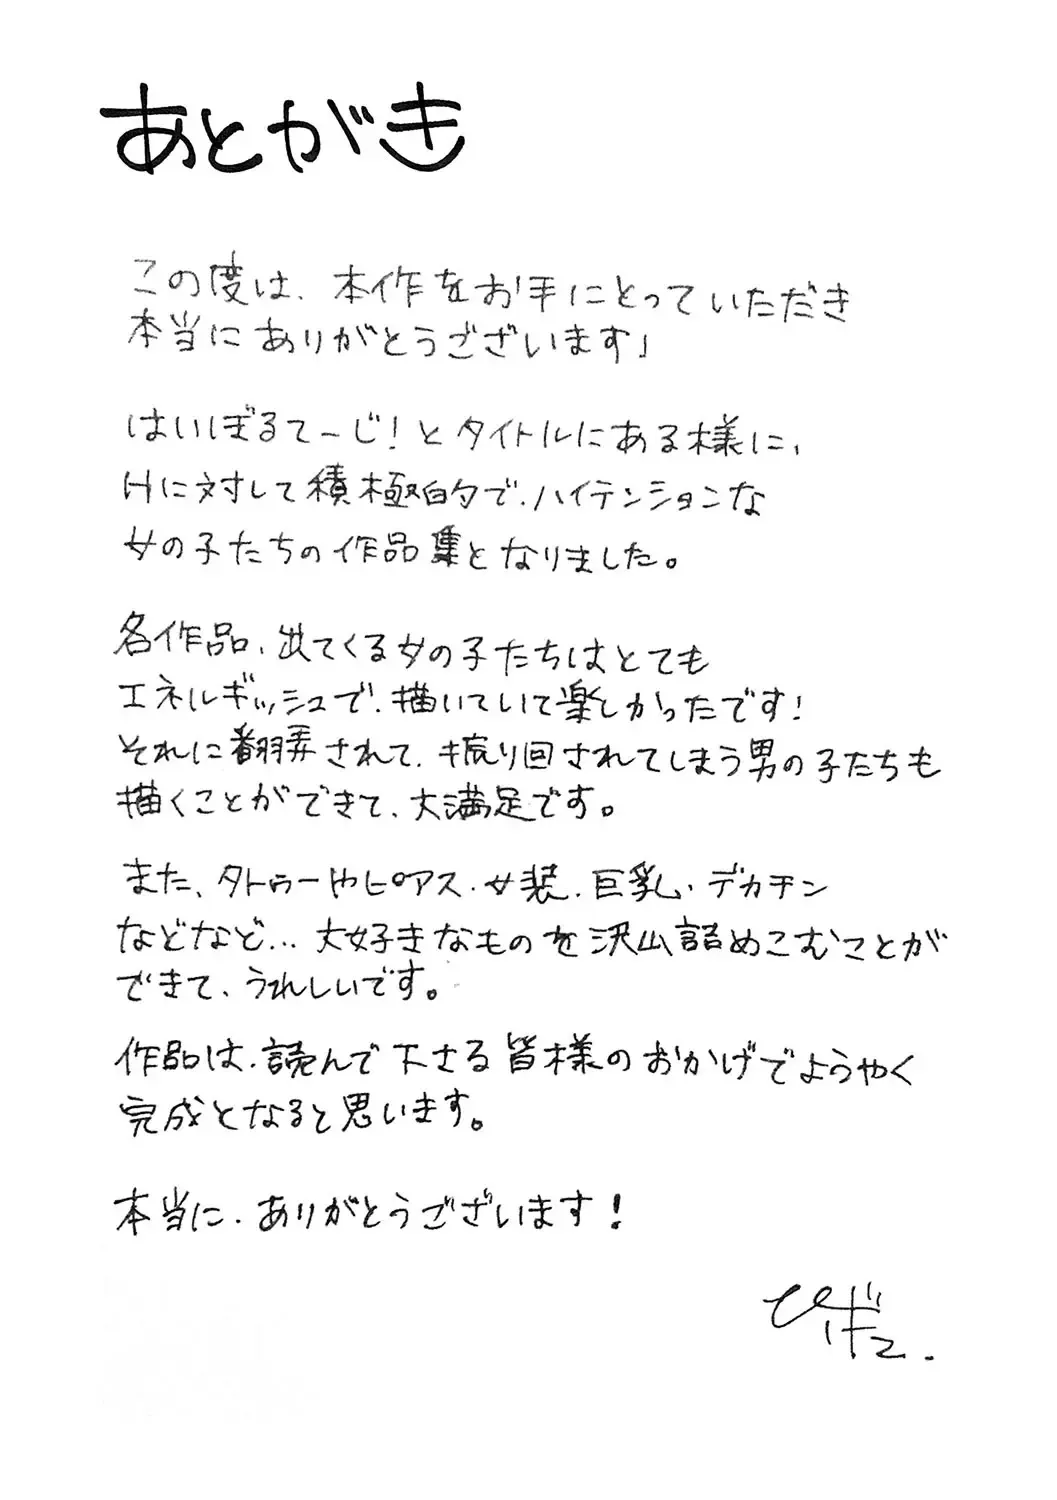 あとがき
この度は、本作をお手にとっていただき
本当にありがとうございます」
はいぼるてーじ!とタイトルにある様に、
Hに対して積極的で、ハイテンションな
女の子たちの作品集となりました。
各作品、出てくる女の子たちはとても
エネルギッシュで、描いていて楽しかったです!
それに翻弄されて、振り回されてしまう男の子たちも
描くことができて、大満足です。
また、タトゥーやピアス、女装、巨乳、デカチン
などなど…大好きなものを沢山詰めこむことが
できて、うれしいです。
作品は、読んで下さる皆様のおかげでようやく
完成となると思います。
本当に、ありがとうございます!